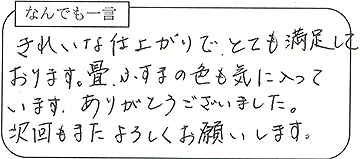 なんでも一言
きれいな仕上がりで、とても満足して
おります。畳、ふすまの色も気に入って
います。ありがとうございました。
次回もまたよろしくお願いします。